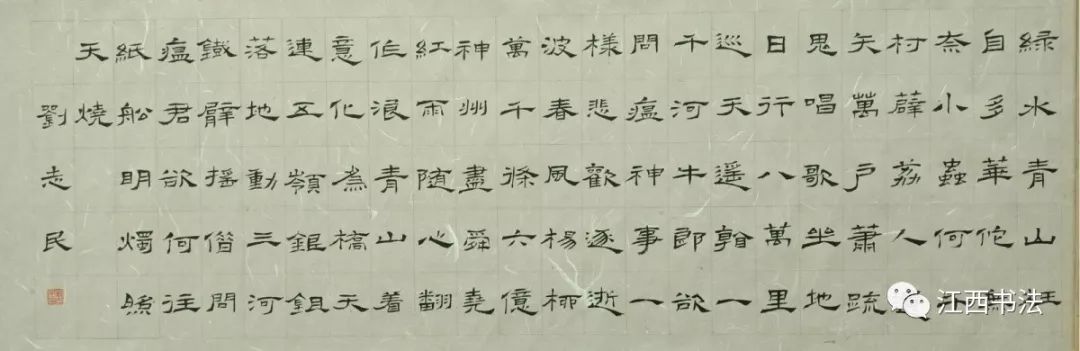 緑水青山枉
自多華佗無
奈小蟲何
村薜荔人
矢萬戶蕭疏
鬼唱歌坐地
日行八萬里
巡天遥翰一
千河牛郎欲
問瘟神事一
樣悲歡逐逝
波春風楊柳
萬千條六億
神州盡舜堯
紅雨随心翻
作浪青山着
意化為橋天
連五嶺銀鉏
落地動三河
鐵臂摇借問
瘟君欲何往
紙船明燭照
天燒
劉志民
江西书法